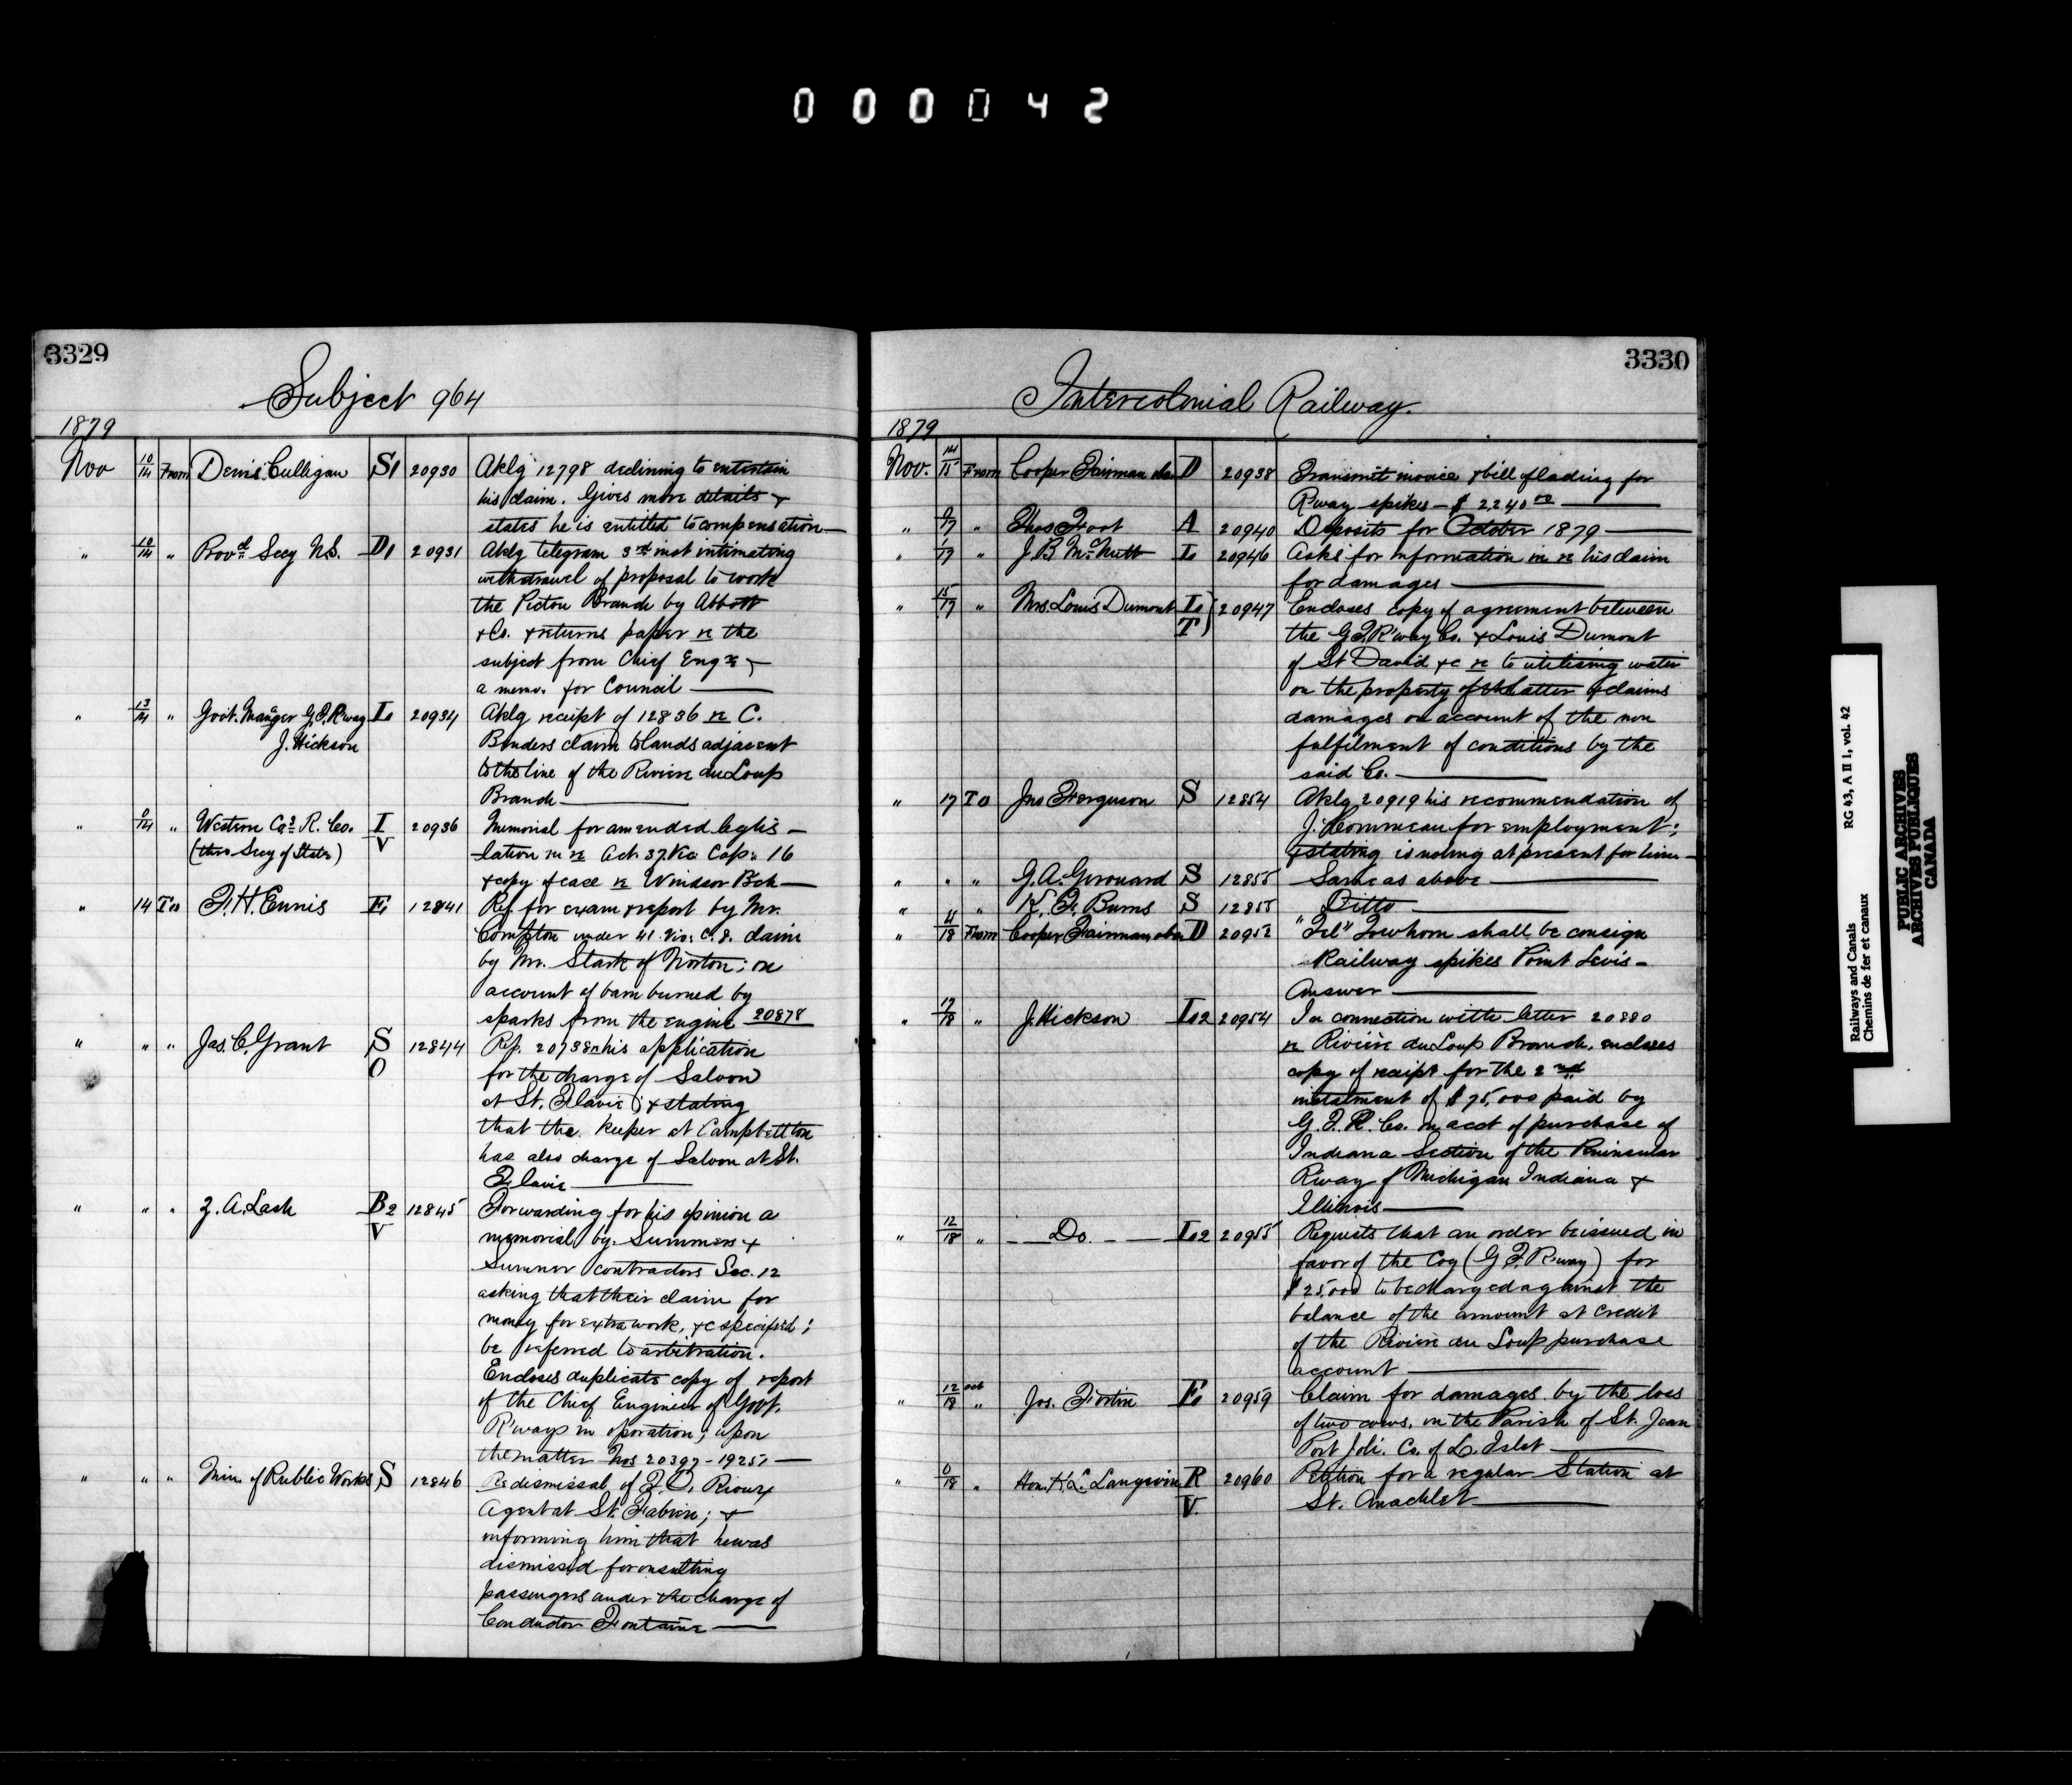 000042
3329
Subject 964
1879
Nov 10/14 From Denis Culligan S1 20930 Aklg 12798 declining to entertain
his claim. Gives more details &
states he is entitled to compensation
" 10/14 " Provl Secy N.S. D1 20931 Aklg telegram 3rd inst intimating
withdrawel of proposal to work
the Pictou Branch by Abbott
& Co. & returns paper re the
subject from Chief Engr &
a memo. for Council
" 13/14 " Govt. Manger G.T. Rway L1 20934 Aklg receipt of 12836 re C.
J. Hickson Benders claim to lands adjacent
to the line of the Riviere du Loup
Branch
" 0/14 " Western Cos R. Co. I 20936 Memorial for amended legis-
(thro Secy of State) V lation in re Act. 37. Vic Cap: 16
& copy of case re Windsor Bch
" 14 To F. H. Ennis F1 12841 Ref. for exam & report by Mr.
Compton under 41. Vic: C. 8. claim
by Mr. Stark of Norton; on
account of barn burned by
sparks from the engine 20878
" " " Jas. C. Grant S 12844 Ref. 20738 re his application
O for the charge of Saloon
at St. Flavie; & stating
that the keeper at Campbellton
has also charge of Saloon at St.
Flavie
" " " Z. A. Lash B2 12845 Forwarding for his opinion a
V memorial by Summers &
Sumner contractors Sec. 12
asking that their claim for
money for extra work, &c specified;
be referred to arbitration.
Encloses duplicate copy of report
of the Chief Engineer of Govt.
R'ways in operation; upon
the matter Nos 20397 - 19251
" " " Min. of Public Works S 12846 Re dismissal of F. O. Rioux
Agent at St. Fabien; &
informing him that he was
dismissed for insulting
passengers under the charge of
Conductor Fontaine
3330
Intercolonial Railway.
1879
Nov. 14/15 From Cooper Fairman & Co D 20938 Transmit invoice & bill of lading for
R'way spikes - $ 2240 00
" 0/17 " Thos Foot A 20940 Deposits for October 1879
" 1/17 " J. B. McNutt L1 20946 Asks for information in re his claim
for damages
" 15/17 " Mrs. Louis Dumont L1 20947 Encloses copy of agreement between
T the G.T. R'way Co. & Louis Dumont
of St David &c re to utilising water
on the property of the latter & claims
damages on account of the non
fulfilment of conditions by the
said Co.
" 17 To Jno Ferguson S 12854 Aklg 20919 his recommendation of
J. Commeau for employment;
& stating is nothing at present for him
" " " G. A. Girouard S 12855 Same as above
" " K. F. Burns S 12855 Ditto
" 4/18 From Cooper Fairman & Co D 20952 "Tel" To whom shall be consign
Railway spikes Point Levis -
Answer
" 17/18 " J. Hickson L2 20954 In connection with letter 20880
re Riviere du Loup Branch, encloses
copy of receipt for the 2nd
instalment of $75,000 paid by
G.T.R. Co. on acct of purchase of
Indiana Section of the Peninsular
R'way of Michigan Indiana &
Illinois
" 12/18 " Do. L2 20955 Requests that an order be issued in
favor of the Coy (G.T. R'way) for
$25,000 to be charged against the
balance of the amount at credit
of the Riviere du Loup purchase
account
" 12/18 oct " Jos. Fortin F1 20959 Claim for damages by the loss
of two cows. in the Parish of St. Jean
Port Joli. Co. of L. Islet
" 0/18 " Hon. H. L. Langevin R 20960 Petition for a regular Station at
V. St. Anaclet
Railways and Canals RG 43, A II 1, vol. 42
Chemins de fer et canaux
PUBLIC ARCHIVES
ARCHIVES PUBLIQUES
CANADA